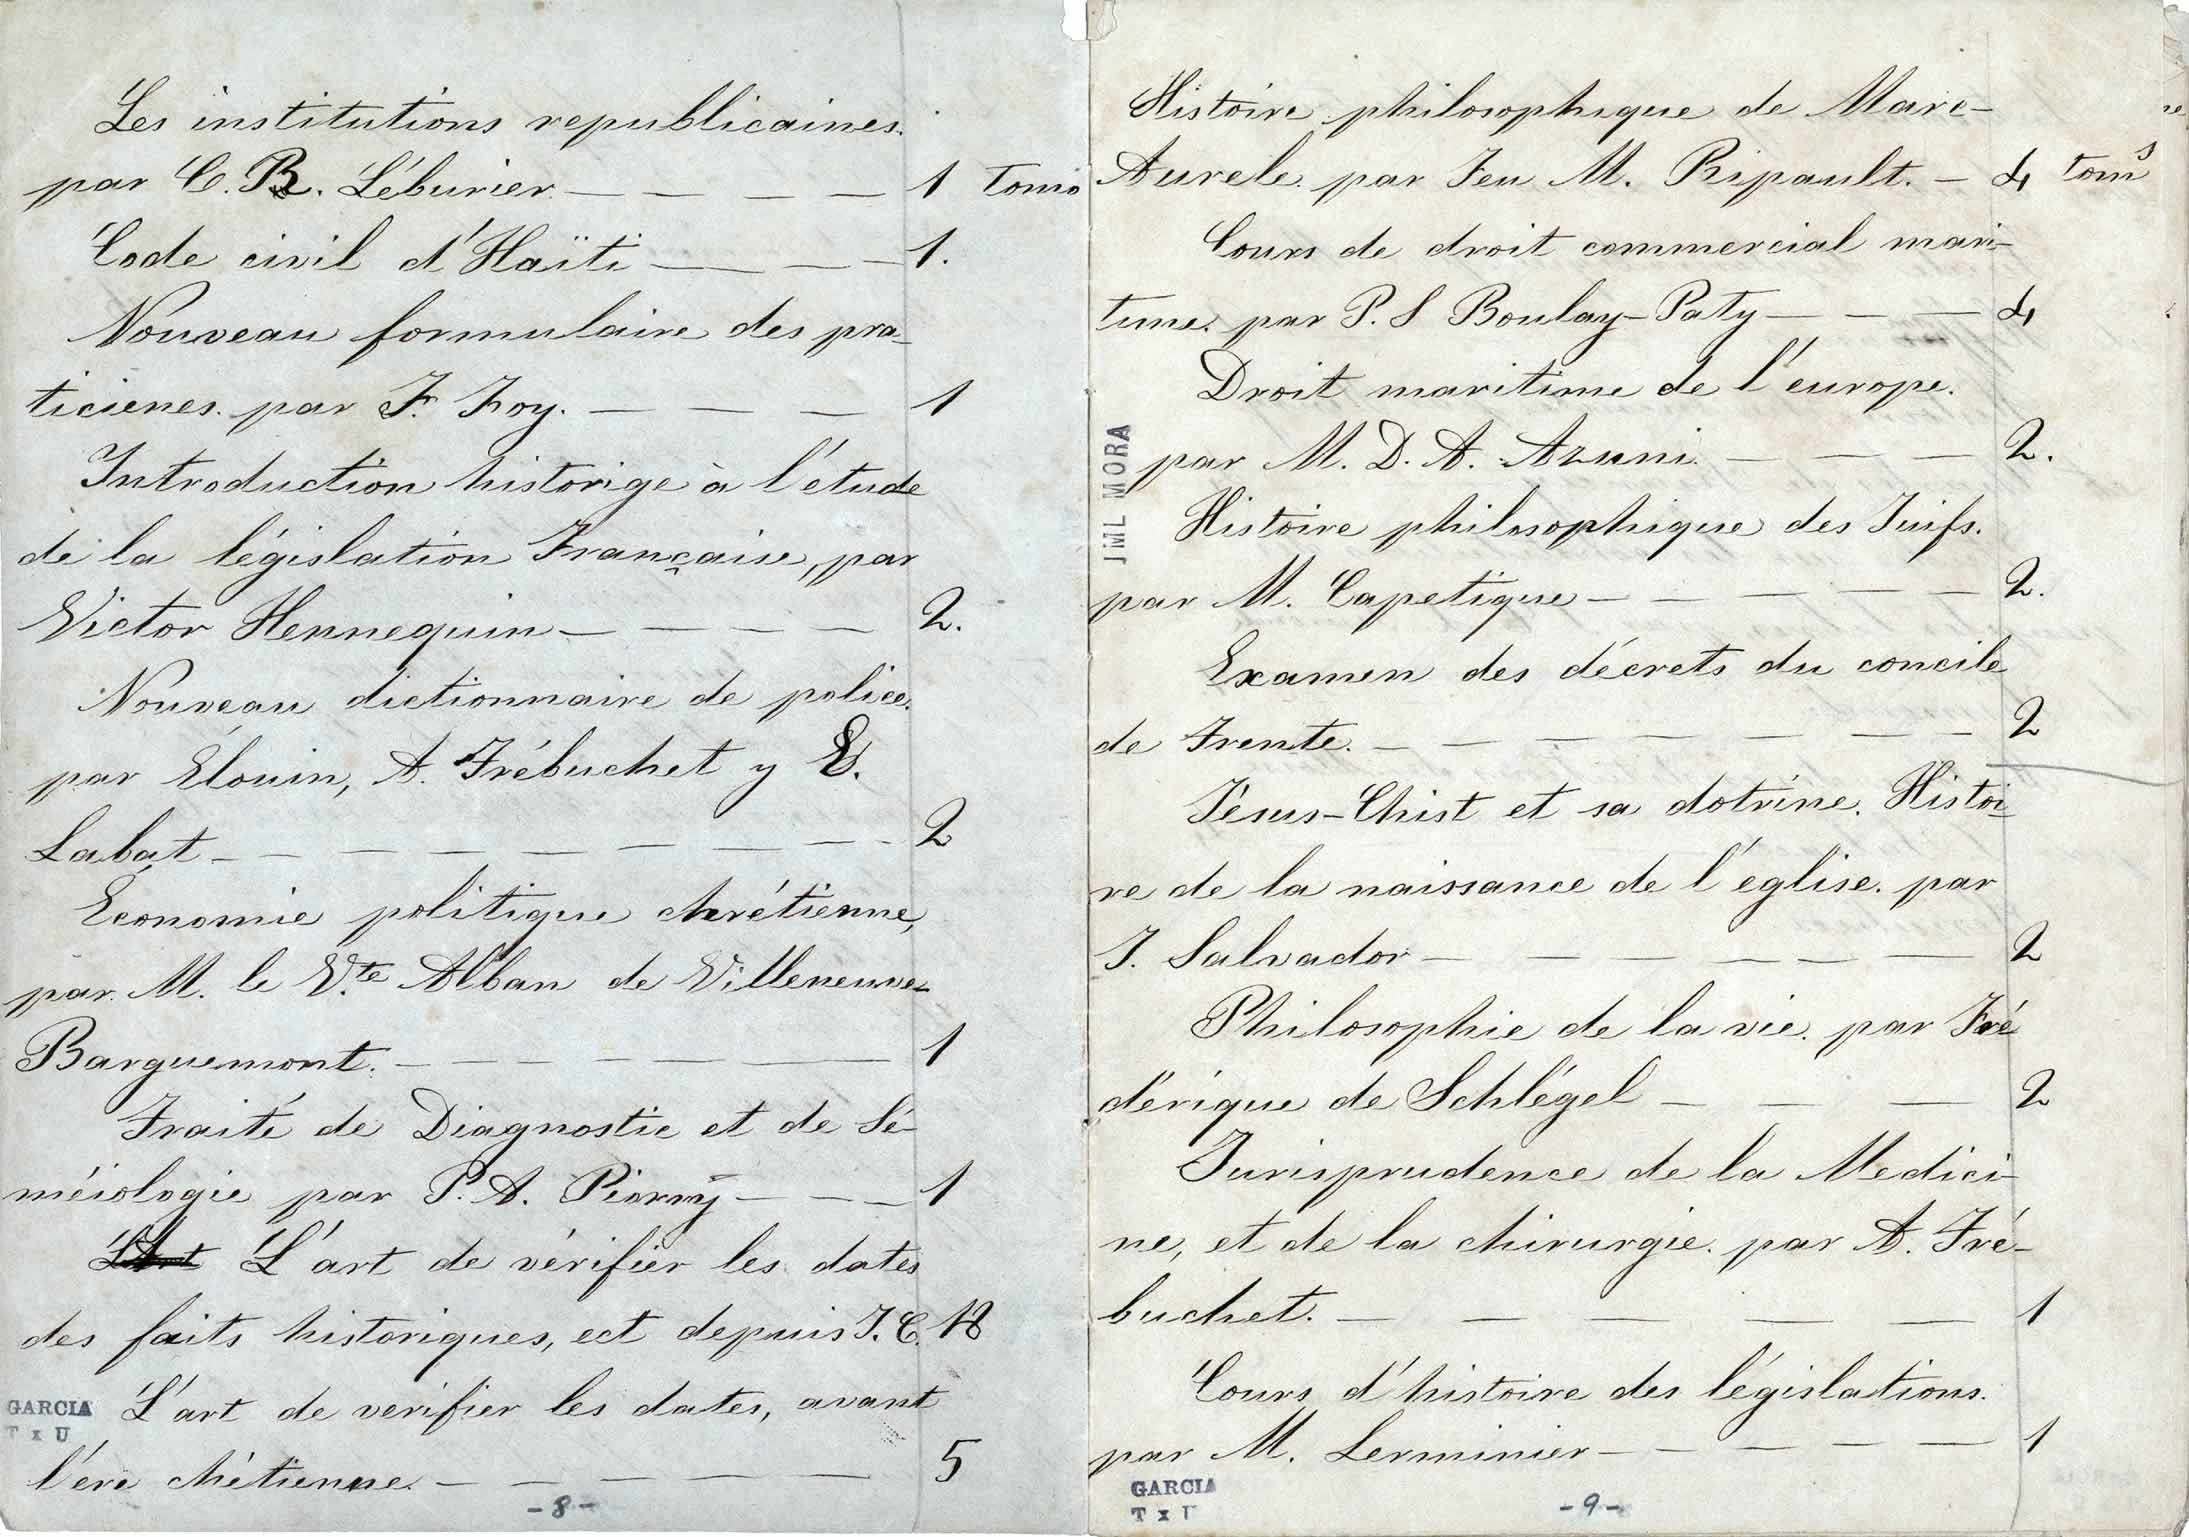 Les institutions republicaines.
par C. B. Léburier — — — — 1 tomo
Code civil d'Haïti — — — — 1.
Nouveau formulaire des pra-
ticienes. par F. Foy. — — — 1
Introduction historige à l'étude
de la législation Française, par
Victor Hennequin — — — — 2.
Nouveau dictionnaire de police.
par Élouin, A. Trébuchet y E.
Labat — — — — — — — — 2
Économie politique chrétienne,
par M. le V.te Alban de Villeneuve-
Barguemont. — — — — — — 1
Traité de Diagnostic et de Sé-
méiologie par P. A. Piorry — — — 1
L'Art L'art de vérifier les dates
des faits historiques, ect depuis J. C. 18
L'art de verifier les dates, avant
l'ère chétienne. — — — — — 5
GARCIA
T x U
-8-
Histoire philosophique de Marc-
Aurele. par feu M. Ripault. — 4 tom.s
Cours de droit commercial mari-
time. par P. S Boulay-Paty — — — 4
Droit maritime de l'europe.
par M. D. A. Azuni. — — — 2.
Histoire philosophique des Juifs.
par M. Capetigue — — — — — 2.
Examen des décrets du concile
de Trente. — — — — — — — — 2
Jésus-Chist et sa dotrine. Histoi-
re de la naissance de l'église. par
J. Salvador — — — — — — 2
Philosophie de la vie. par Fré
dérique de Schlégel — — — 2
Jurisprudence de la Medici-
ne, et de la chirurgie. par A. Tré-
buchet. — — — — — — 1
Cours d'histoire des législations.
par M. Lerminier — — — — — 1
JML MORA
GARCIA
T x U
-9-